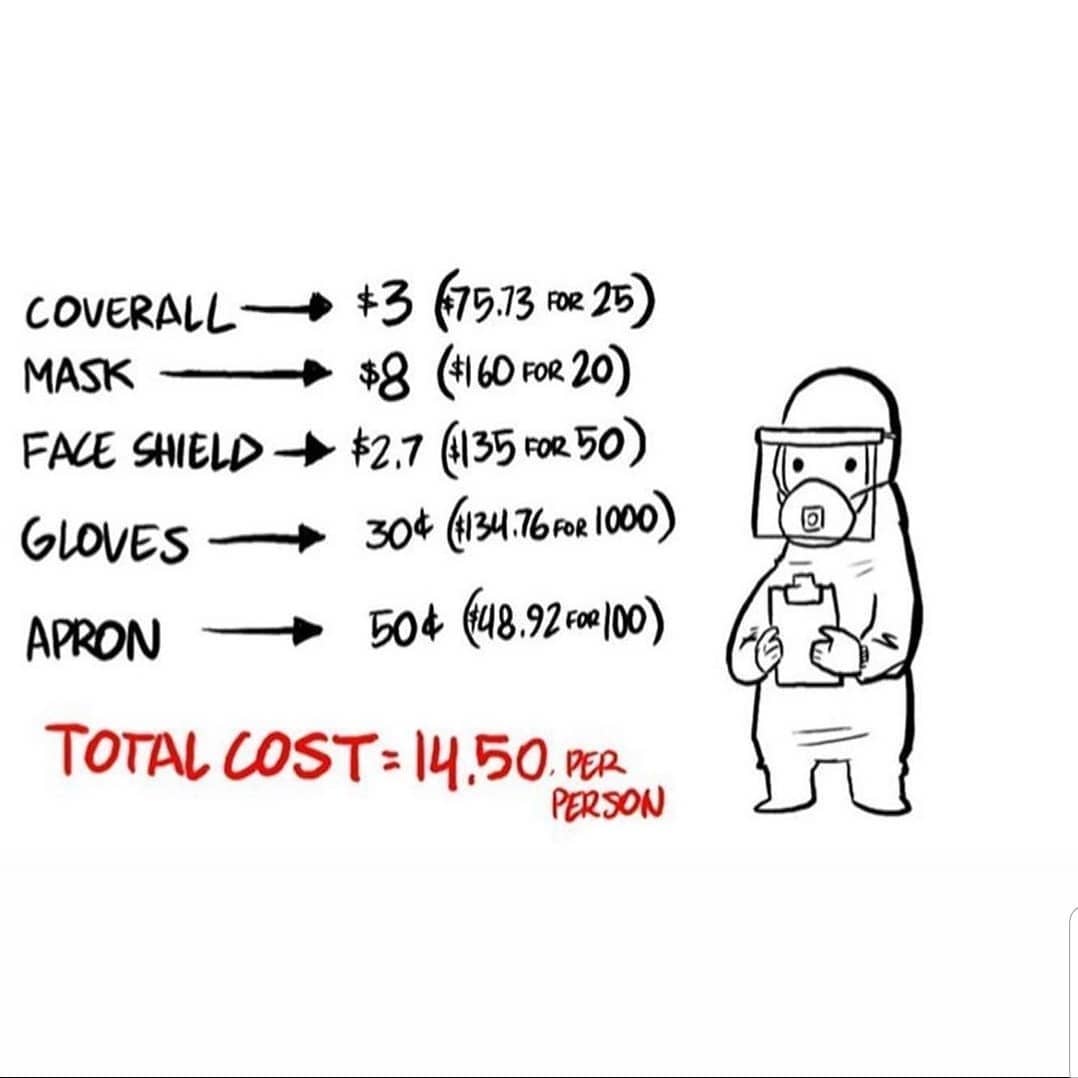 COVERALL → $3 ($75.73 FOR 25)
MASK → $8 ($160 FOR 20)
FACE SHIELD → $2.7 ($135 FOR 50)
GLOVES → 30¢ ($134.76 FOR 1000)
APRON → 50¢ ($48.92 FOR 100)
TOTAL COST = 14.50. PER
PERSON